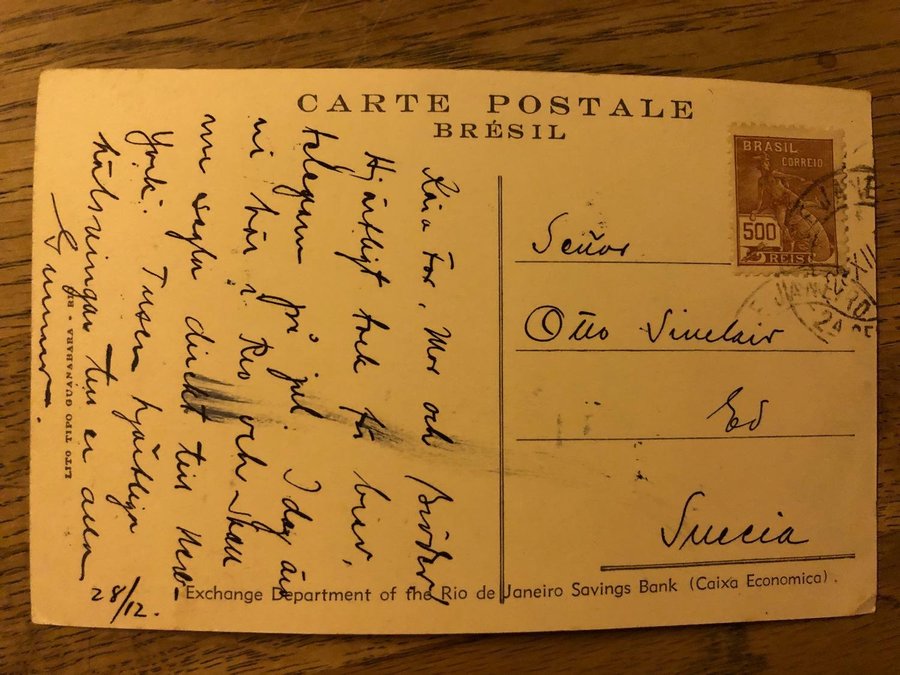 CARTE POSTALE
BRÉSIL
BRASIL
CORREIO
500
REIS
JANEIRO
Kära Far, Mor och Bröder,
Hjärtligt tack för brev,
telegram på jul. I dag äro
vi här i Rio och skall
nu segla direkt till New-
York. Tusen hjärtliga
hälsningar till er alla
Gunnar.
28/12.
Señor
Otto Sinclair
Ed
Suecia
Exchange Department of the Rio de Janeiro Savings Bank (Caixa Economica).
LITO TIPO GUANABARA - RIO